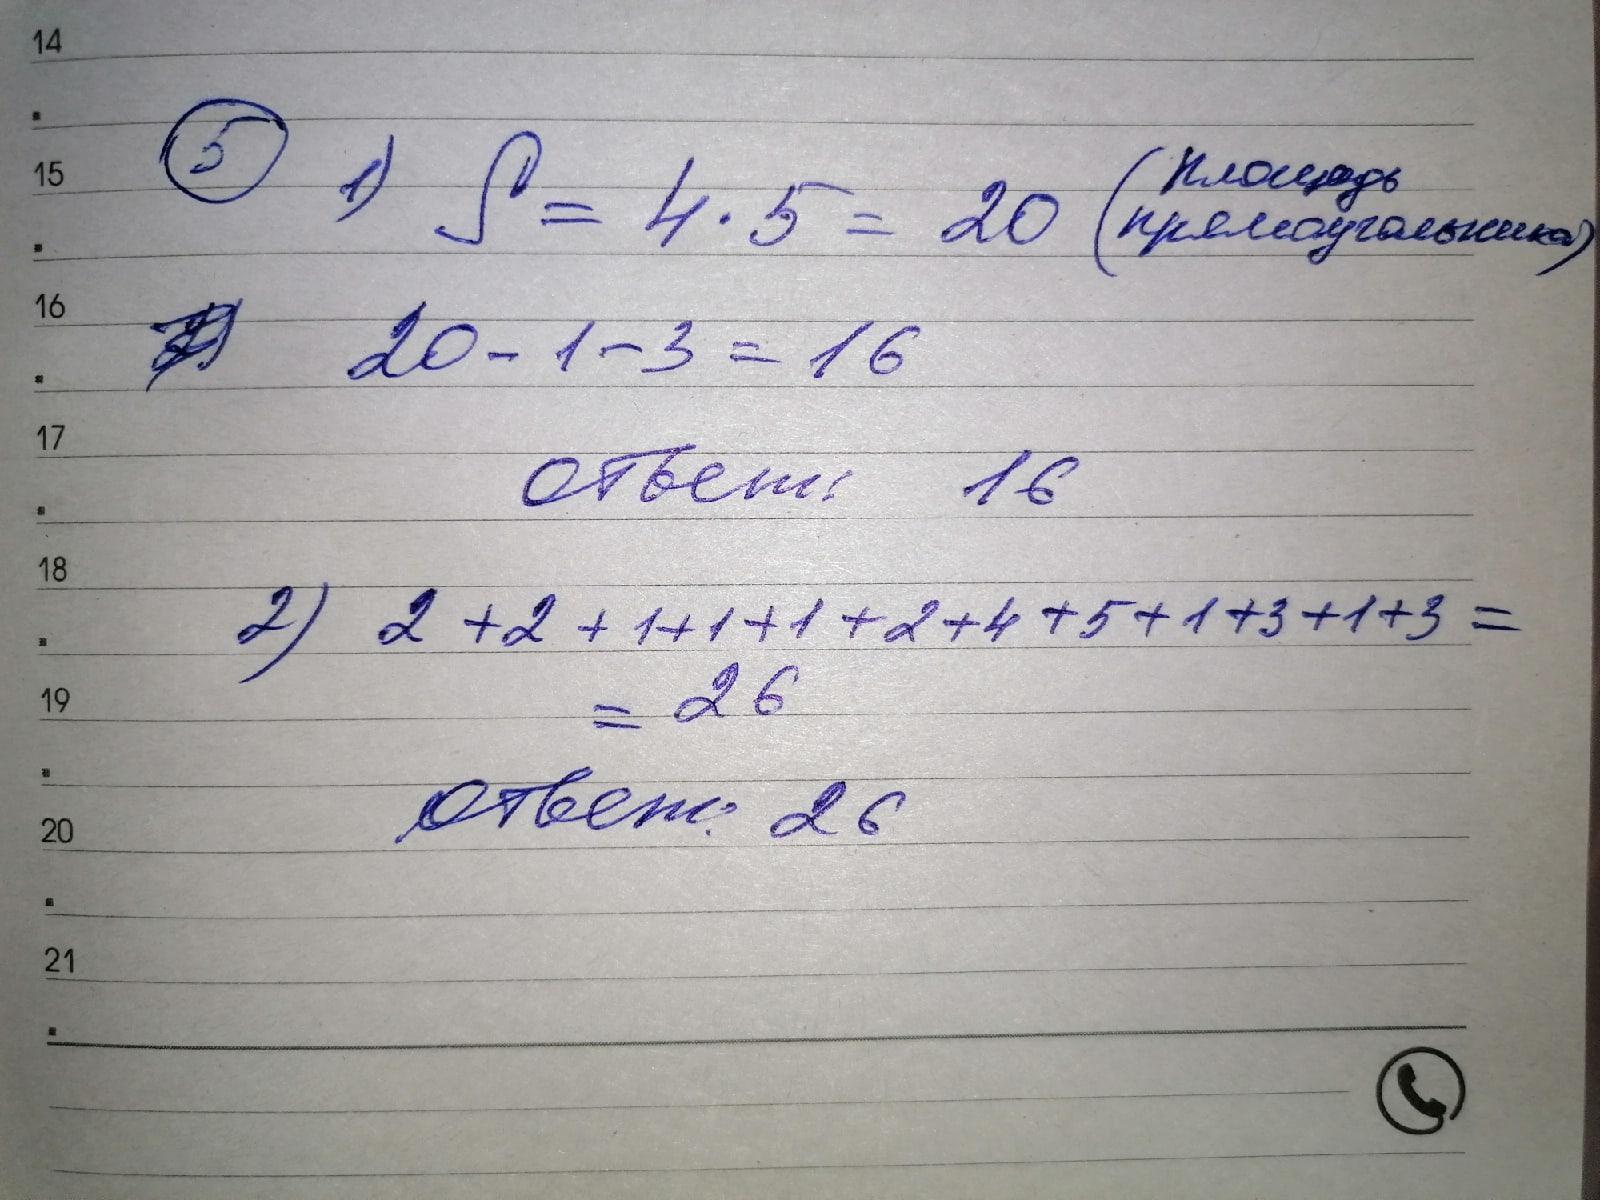 14
5 1) S = 4 · 5 = 20 (площадь
15
прямоугольника)
16
20 - 1 - 3 = 16
17
Ответ: 16
18
2) 2 + 2 + 1 + 1 + 1 + 2 + 4 + 5 + 1 + 3 + 1 + 3 =
19
= 26
Ответ: 26
20
21